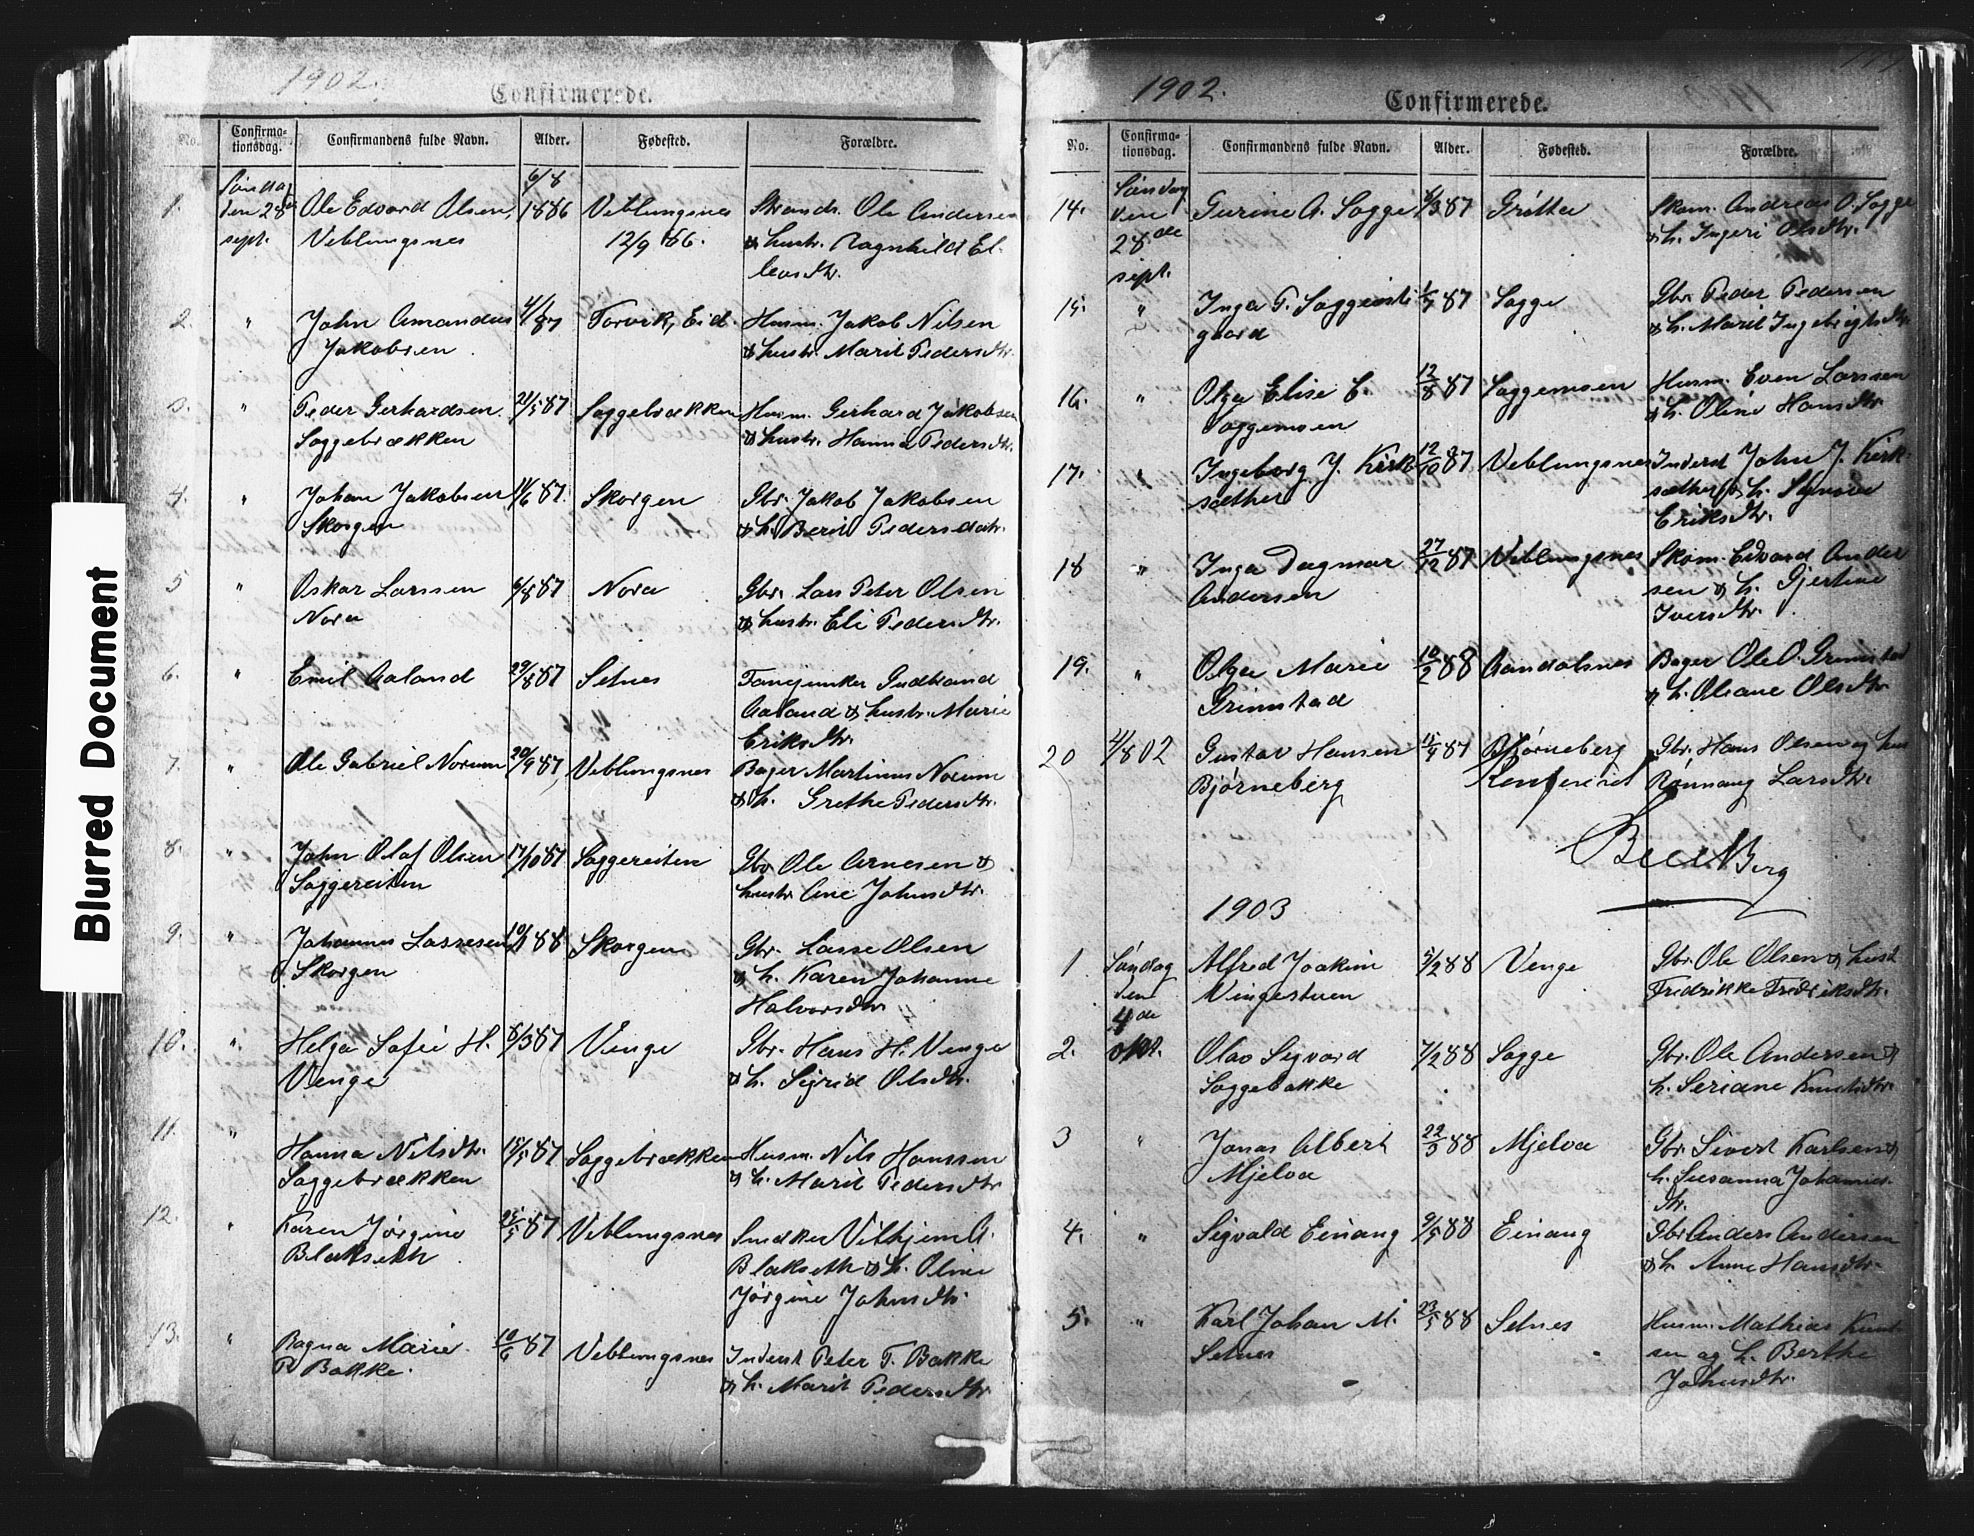 Blurred Document
1902.
Confirmerede.
No. Confirmationsdag. Confirmandens fulde Navn. Alder. Fødested. Forældre.
1. Søndag den 28de sept. Ole Edvard Olsen, Veblungsnes 6/8 1886 Veblungsnes 12/9 86. Strands. Ole Andersen & hustr. Ragnhild Elleusdtr.
2. " John Amandus Jakobsen 4/1 87 Torvik, Eid. Husm. Jakob Nilsen & hustr. Marit Pedersdtr.
3. " Peder Gerhardsen Soggebrækken 21/5 87 Soggebrækken Husm. Gerhard Jakobsen & hustr. Hanna Pedersdtr.
4. " Johan Jakobsen Skorgen 11/6 87. Skorgen Gbr. Jakob Jakobsen & h. Berit Pedersdatr.
5 " Oskar Larssen Nora 6/8 87 Nora Gbr. Lars Peter Olsen & hustr. Eli Pedersdtr.
6. " Emil Aaland 29/8 87 Setnes Fanejunker Gudbrand Aaland & hustr. Marie Eriksdtr.
7. " Ole Gabriel Norum 20/9 87, Veblungsnes Bager Martinus Norum & h. Grethe Pedersdtr.
8. " John Olaf Olsen Soggereiten 17/10 87 Soggereiten Gbr Ole Arnesen & hustr. Ane Johnsdtr.
9. " Johannes Lassesen Skorgen 88 Skorgen Gbr. Lasse Olsen & h. Karen Johanne Halvorsdtr
10. " Helga Sofie H. Venge 8/3 87 Venge Gbr. Hans H. Venge & h. Sigrid Olsdtr.
11. " Hanna Nilsdtr. Soggebrækken 15/5 87 Soggebrækken Husm. Nils Hanssen & h. Marit Pedersdtr
12. " Karen Jørgine Blakseth 25/5 87 Veblungsnes Snedker Vilhjem A. Blakseth & h. Oline Jørgine Johnsdtr.
13. " Ragna Marie P Bakke. 10/6 87 Veblungsnes Inderst Peter T. Bakke & h. Marit Pedersdtr.
1902.
Confirmerede.
No. Confirmationsdag. Confirmandens fulde Navn. Alder. Fødested. Forældre.
14. Søndag den 28de sept. Gurine A. Sogge 6/3 87 Gritta Skom. Andreas O. Sogge & h. Ingeri Olsdtr.
15. " Inga P. Soggeostigaard 1/7 87 Sogge Gbr. Peder Pedersen & h. Marit Ingebrigtsdtr
16. " Olga Elise E. Soggemoen 12/8 87 Soggemoen Husm. Even Larssen & h. Oline Hansdtr.
17. " Ingeborg J. Kirksæther 12/10 87 Veblungsnes Inderst John J. Kirksæther & h. Synnøve Eriksdtr.
18 " Inga Dagmar Andersen 27/12 87 Veblungsnes Skom. Edvard Andersen & h. Gjertine Iversdtr.
19. " Olga Marie Grimstad 10/2 88 Aandalsnes Bager Ole O. Grimstad & h. Oliane Olsdtr.
20 4/8 02 Gustav Hansen Bjørneberg 15/9 87 Bjørneberg Gbr. Hans Olsen og hus Rønnaug Larsdtr.
Berg
1903
1 Søndag den 4de okt. Alfred Joakim Vengestuen 5/2 88 Venge Gbr. Ole Olsen & hust Fredrikke Fredriksdtr.
2. Olav Sigvard Soggebakke 7/2 88 Sogge Gbr. Ole Andersen & h. Seriane Knutsdtr.
3 " Jonas Albert Mjelva 22/3 88 Mjelva Gbr. Sivert Karlsen & h. Susanna Johannesdtr.
4. " Sigvald Einang 9/5 88 Einang Gbr Anders Andersen & h. Anne Hansdtr.
5. " Karl Johan M. Setnes 23/5 88 Setnes Husm. Mathias Knutsen og h. Berthe Johnsdtr.